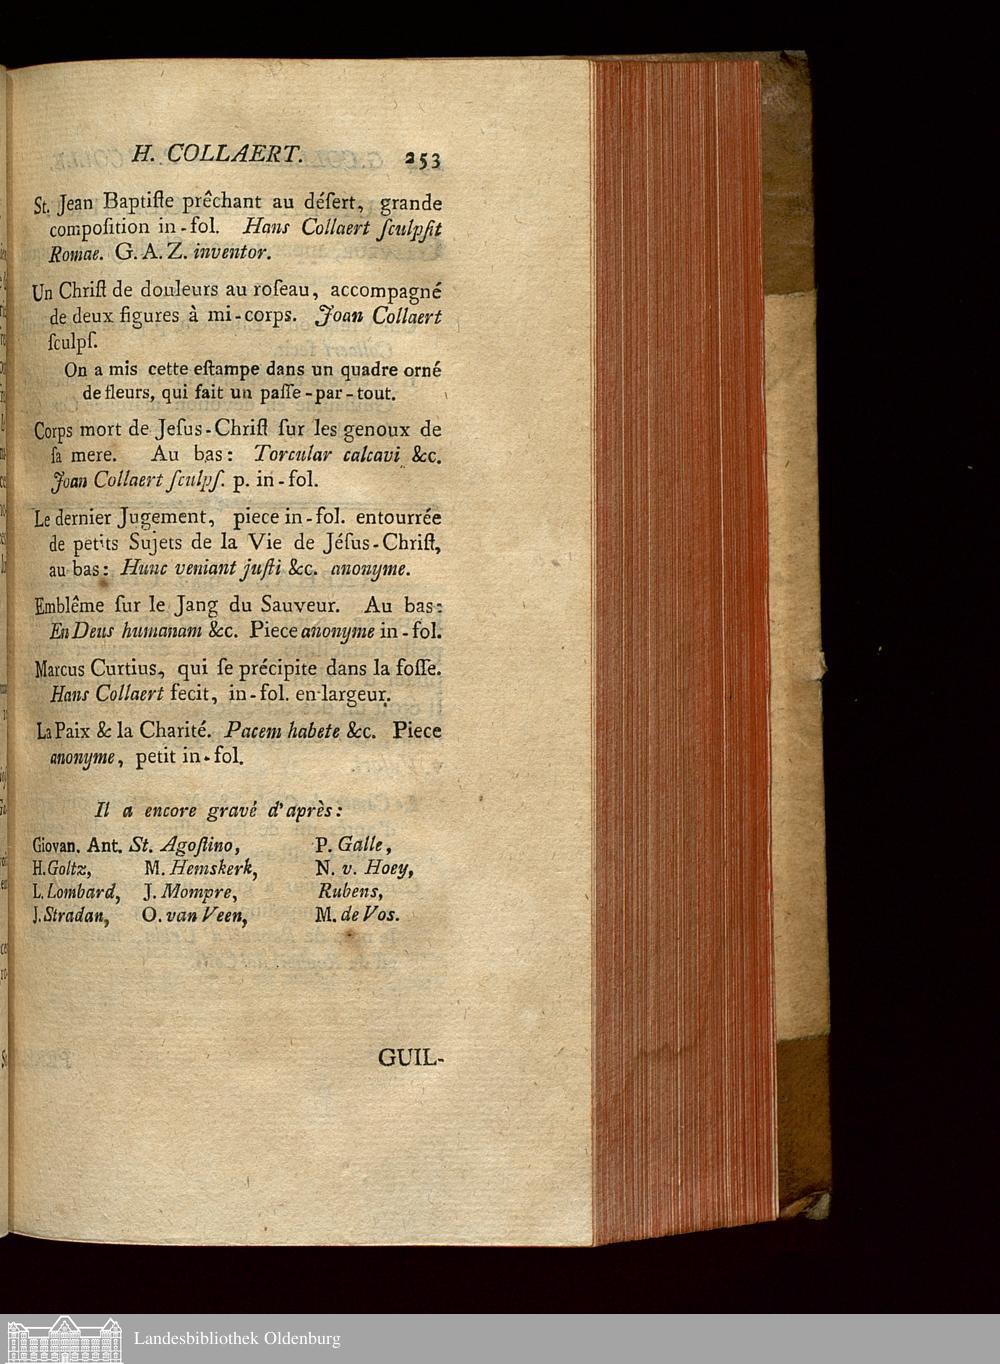 H. COLLAERT. 253
St. Jean Baptiſte prêchant au déſert, grande
compoſition in-fol. Hans Collaert ſculpſit
Romae. G. A. Z. inventor.
Un Chriſt de douleurs au roſeau, accompagné
de deux figures à mi-corps. Joan Collaert
ſculpſ.
On a mis cette eſtampe dans un quadre orné
de fleurs, qui fait un paſſe-par-tout.
Corps mort de Jeſus-Chriſt ſur les genoux de
ſa mere. Au bas: Torcular calcavi &c.
Joan Collaert ſculpſ. p. in-fol.
Le dernier Jugement, piece in-fol. entourrée
de petits Sujets de la Vie de Jéſus-Chriſt,
au bas: Hunc veniant juſti &c. anonyme.
Emblême ſur le Jang du Sauveur. Au bas:
En Deus humanam &c. Piece anonyme in-fol.
Marcus Curtius, qui ſe précipite dans la foſſe.
Hans Collaert fecit, in-fol. en largeur.
La Paix & la Charité. Pacem habete &c. Piece
anonyme, petit in-fol.
Il a encore gravé d'après:
Giovan. Ant. St. Agoſtino, P. Galle,
H. Goltz, M. Hemskerk, N. v. Hoey,
L. Lombard, J. Mompre, Rubens,
J. Stradan, O. van Veen, M. de Vos.
GUIL-
Landesbibliothek Oldenburg